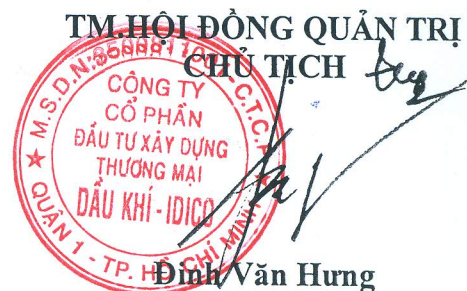 TM.HỘI ĐỒNG QUẢN TRỊ
CHỦ TỊCH
M.S.D.N: - C.T.C.P
CÔNG TY
CỔ PHẦN
ĐẦU TƯ XÂY DỰNG
THƯƠNG MẠI
DẦU KHÍ - IDICO
QUẬN 1 - TP. HỒ CHÍ MINH
Đinh Văn Hưng